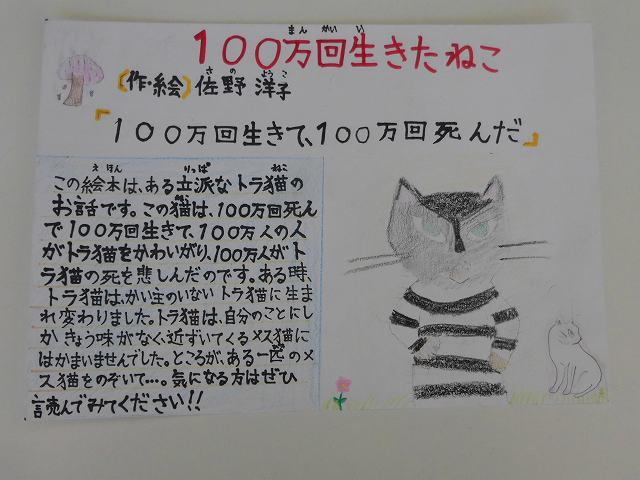 まん かい い
100万回生きたねこ
さ の ようこ
【作・絵】佐野 洋子
「100万回生きて、100万回死んだ」
え ほん りっぱ ねこ
この絵本は、ある立派なトラ猫の
お話です。この猫は、100万回死ん
で100万回生きて、100万人の人
がトラ猫をかわいがり、100万人がト
ラ猫の死を悲しんだのです。ある時、
トラ猫は、かい主のいないトラ猫に生ま
れ変わりました。トラ猫は、自分のことにし
かきょう味がなく、近ずいてくるメス猫に
はかまいませんでした。ところが、ある一匹のメ
ス猫をのぞいて…。気になる方はぜひ
読んでみてください!!